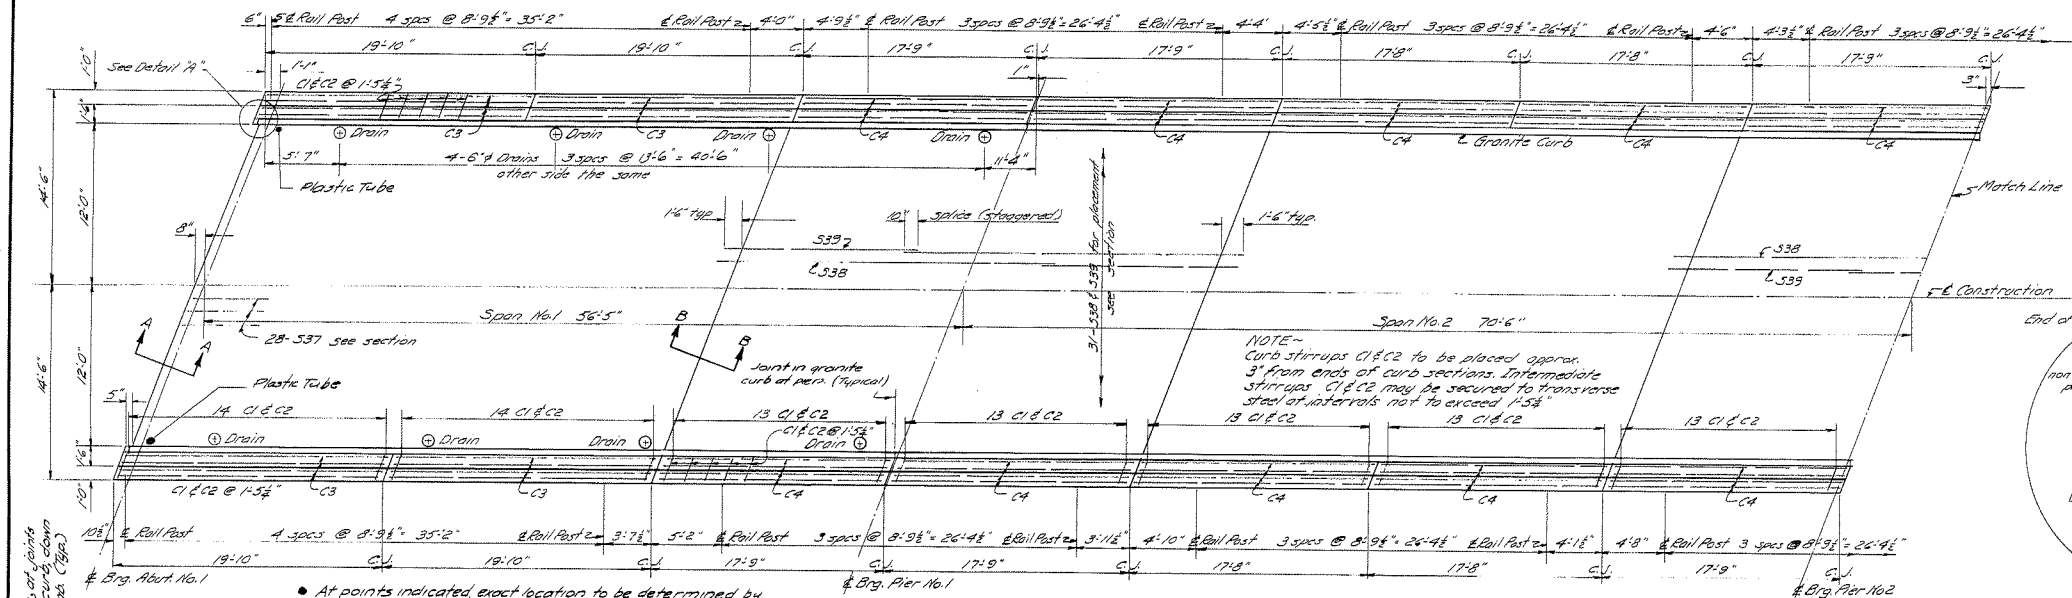 6" 5" ℄ Rail Post 4 spcs @ 8'-9½" = 35'-2" ℄ Rail Post 4'-0" 4'-9½" ℄ Rail Post 3 spcs @ 8'-9½" = 26'-4½" ℄ Rail Post 4'-4" 4'-5½" ℄ Rail Post 3 spcs @ 8'-9½" = 26'-4½" ℄ Rail Post 4'-6" 4'-3½" ℄ Rail Post 3 spcs @ 8'-9½" = 26'-4½"
19'-10" C.J. 19'-10" C.J. 17'-9" C.J. 17'-9" C.J. 17'-8" C.J. 17'-8" C.J. 17'-9" C.J.
1'-0" See Detail "A" 1'-1" 1" 3"
C1 & C2 @ 1'-5¼"
1'-6"
Drain C3 Drain C3 Drain C4 Drain C4 C4 Granite Curb C4 C4
5'-7" 4-6"ϕ Drains 3 spcs @ 13'-6" = 40'-6" 11'-4"
other side the same
Plastic Tube
Match Line
14'-6" 12'-0"
1'-6" typ. 10" splice (staggered) 1'-6" typ.
8" S39 S38
S38 S39
31-S38 & S39 for placement
see section
℄ Construction
Span No.1 56'-5" Span No.2 70'-6"
End of
A A B B
28-S37 see section
NOTE~
Curb stirrups C1 & C2 to be placed approx.
3" from ends of curb sections. Intermediate
stirrups C1 & C2 may be secured to transverse
steel at intervals not to exceed 1'-5¼"
Joint in granite
curb at piers. (Typical)
14'-6" 12'-0"
Plastic Tube
5" 14 C1 & C2 14 C1 & C2 13 C1 & C2 13 C1 & C2 13 C1 & C2 13 C1 & C2 13 C1 & C2
C1 & C2 @ 1'-5¼"
Drain Drain Drain Drain
1'-6"
C1 & C2 @ 1'-5¼" C3 C3 C4 C4 C4 C4 C4
1'-0"
10½" ℄ Rail Post 4 spcs @ 8'-9½" = 35'-2" ℄ Rail Post 3'-7½" 5'-2" ℄ Rail Post 3 spcs @ 8'-9½" = 26'-4½" ℄ Rail Post 3'-11½" 4'-10" ℄ Rail Post 3 spcs @ 8'-9½" = 26'-4½" ℄ Rail Post 4'-1½" 4'-8" ℄ Rail Post 3 spcs @ 8'-9½" = 26'-4½"
19'-10" C.J. 19'-10" C.J. 17'-9" C.J. 17'-9" C.J. 17'-8" 17'-8" C.J. 17'-9" C.J.
℄ Brg. Abut. No.1 ℄ Brg. Pier No.1 ℄ Brg. Pier No.2
at joints
curb, down
(Typ.)
● At points indicated, exact location to be determined by